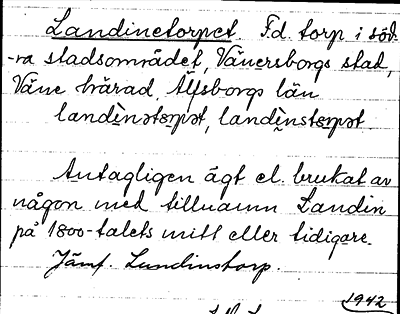 Landinetorpet. F.d. torp i söd-
-ra stadsområdet, Vänersborgs stad,
Väne härad Älfsborgs län
landìnətɷrpət, landìnstɷrpət.
Antagligen ägt el. brukat av
någon med tillnamn Landin
på 1800-talets mitt eller tidigare.
Jämf. Lundinstorp.
1942